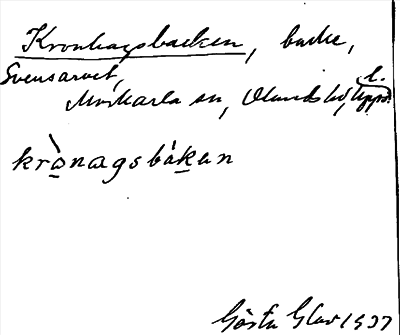 Kronhagsbacken, backe,
Svensarvet,
Morkarla sn, Olands hd, Upps. l.
krònagsbákan
Gösta Glav 1937